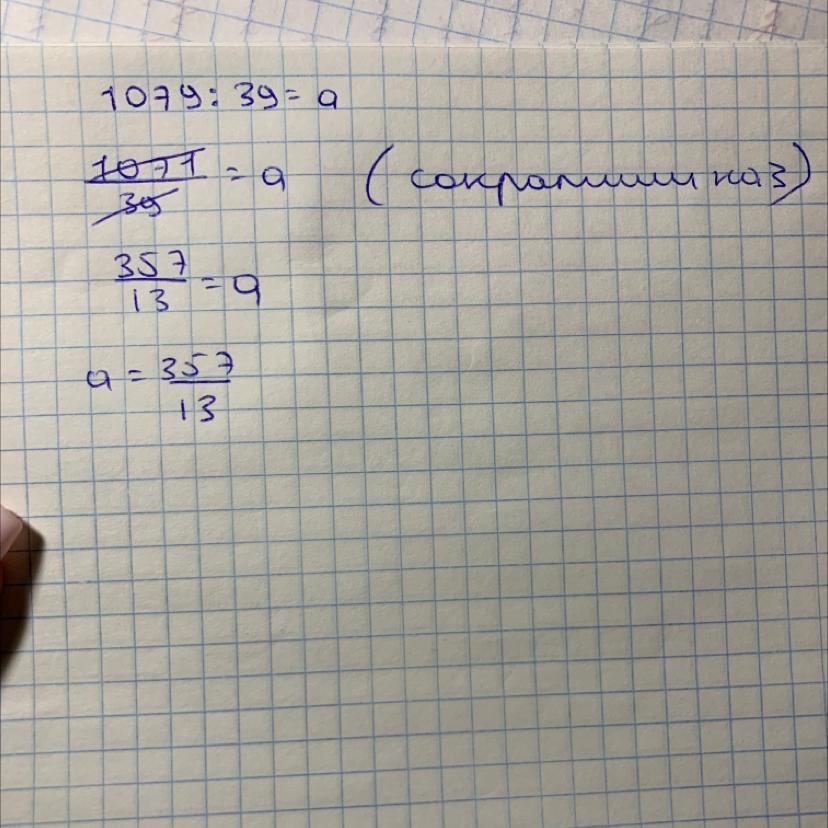 1079 : 39 = a
1071/39 = a (сократили на 3)
357/13 = a
a = 357/13